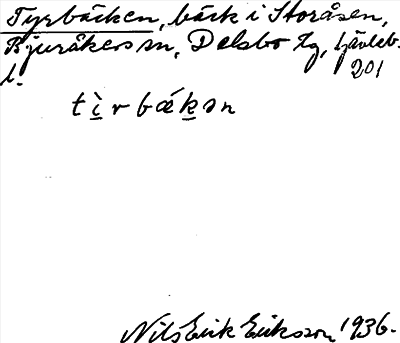 Tyrbäcken, bäck i Storåsen,
Bjuråkers sn, Delsbo tg, Gävleb.
l. 201
tìrbǽkən
Nils Erik Eriksson 1936.